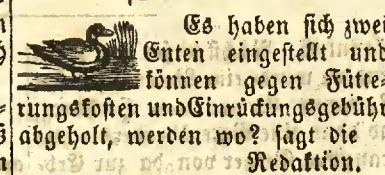 Es haben sich zwei
Enten eingestellt und
können gegen Fütte-
rungskosten und Einrückungsgebühr
abgeholt, werden wo? sagt die
Redaktion.